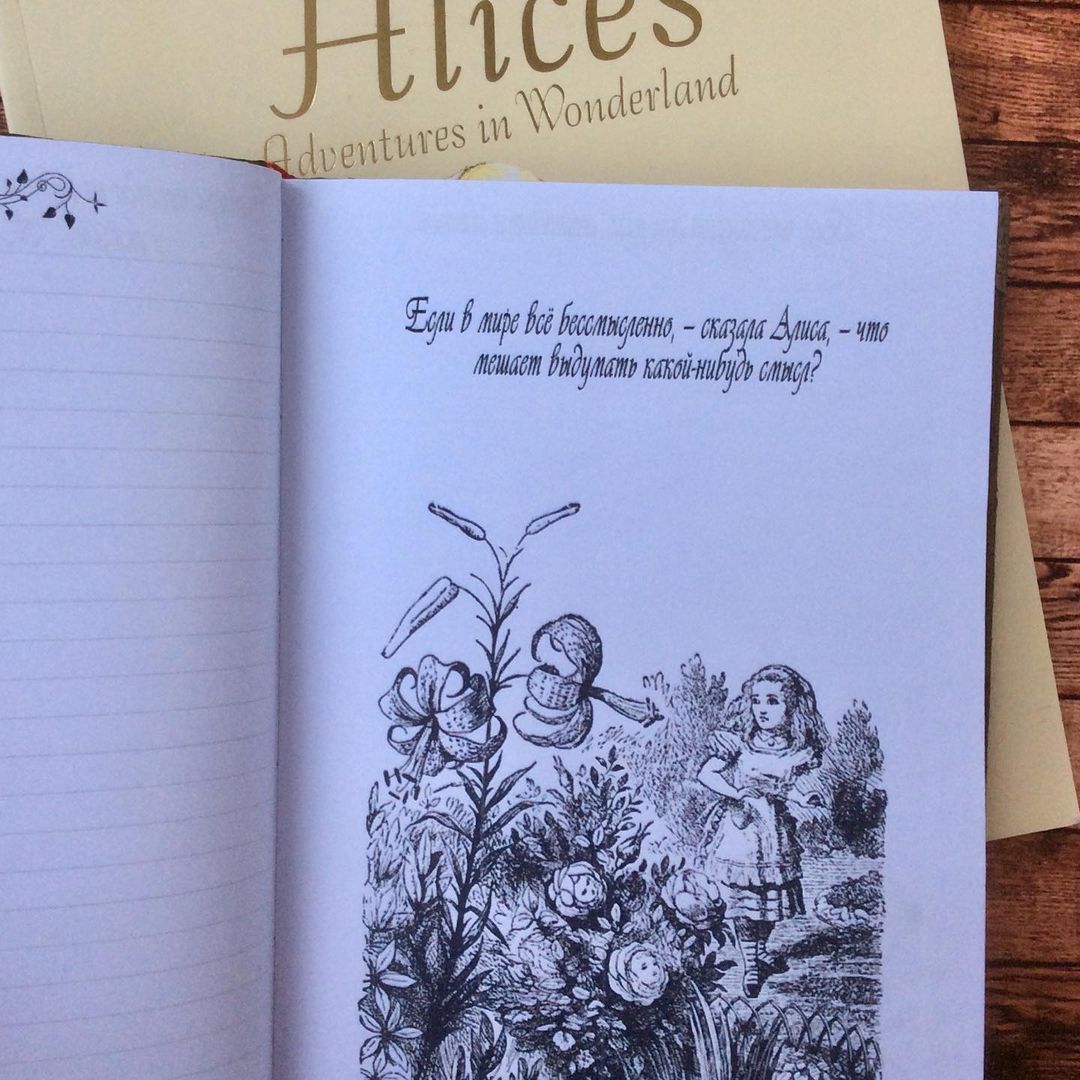 Alice's
Adventures in Wonderland
Если в мире всё бессмысленно, – сказала Алиса, – что
мешает выдумать какой-нибудь смысл?